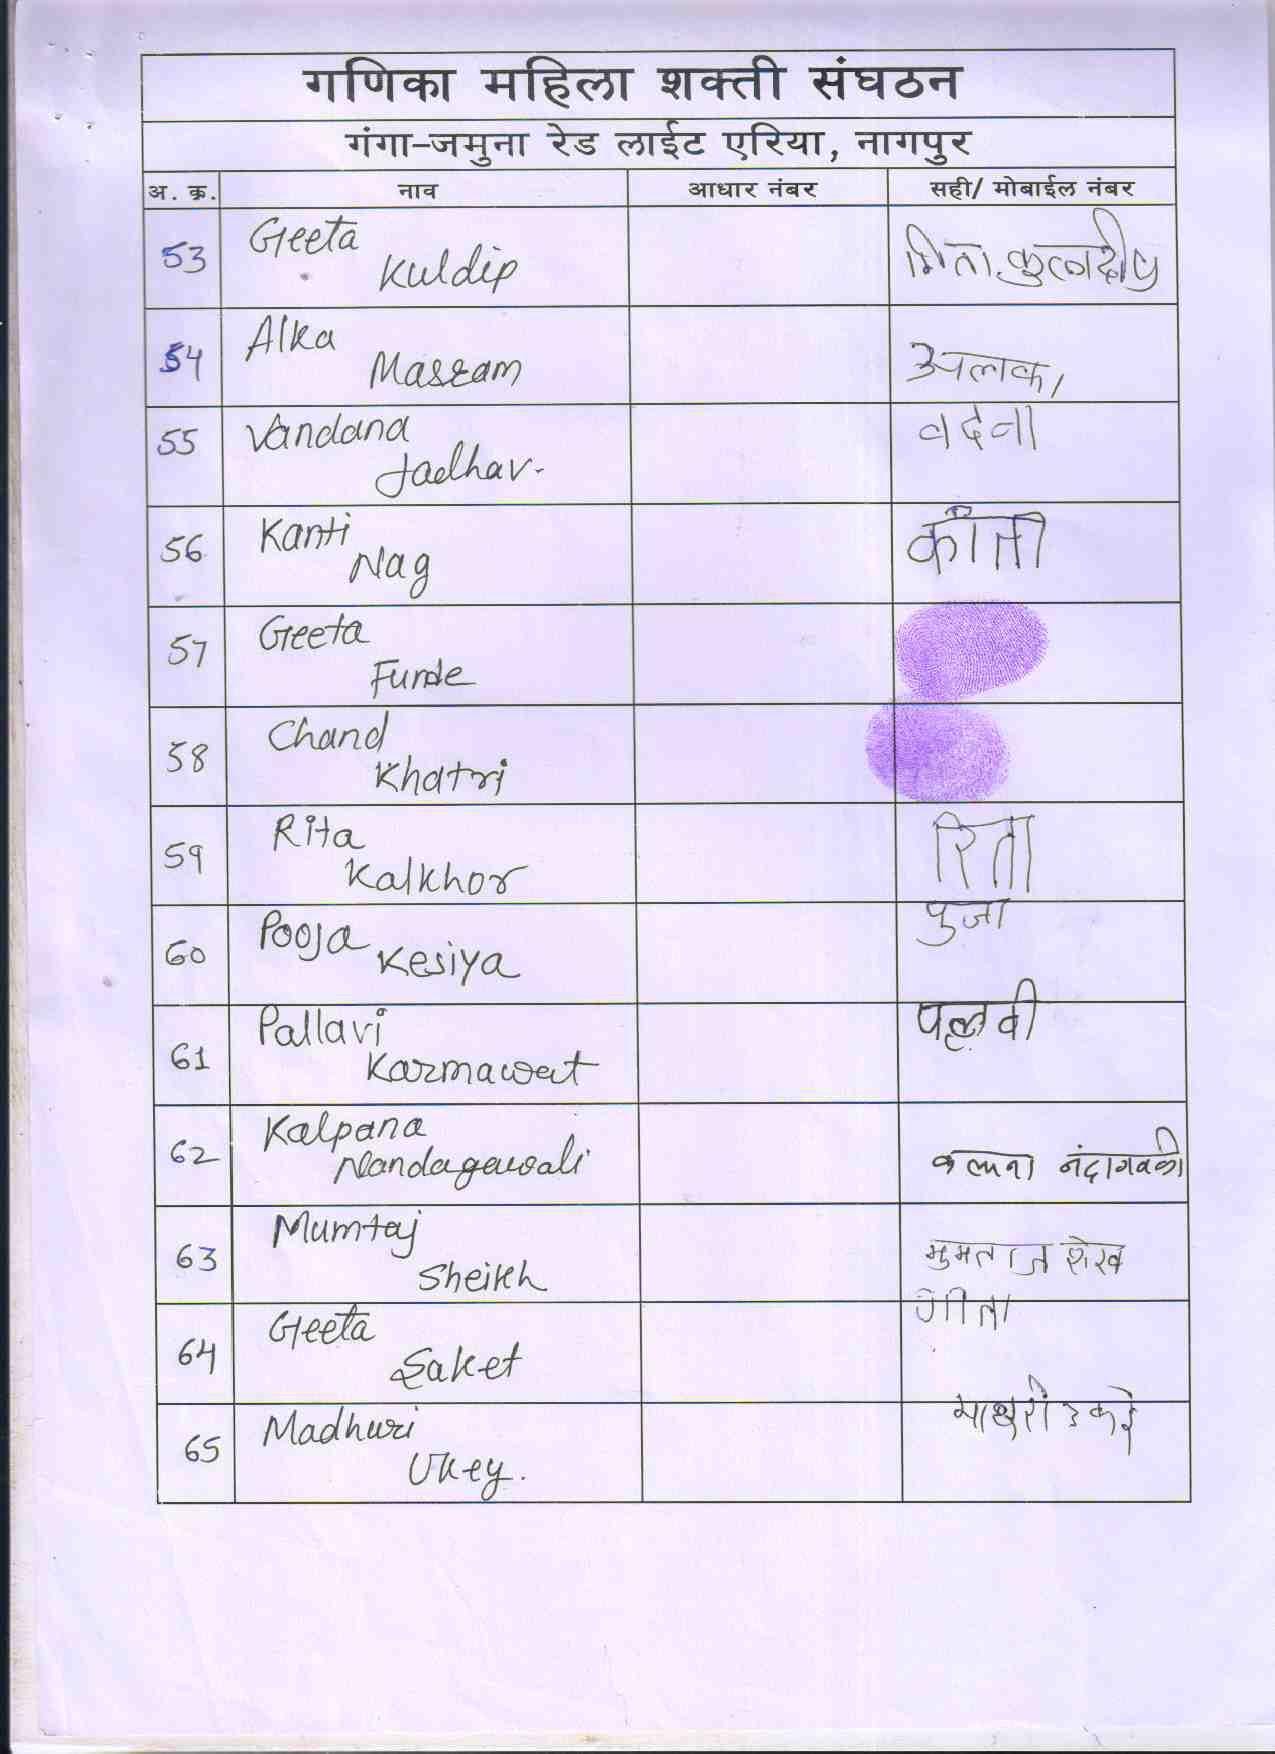 गणिका महिला शक्ती संघठन
गंगा-जमुना रेड लाईट एरिया, नागपुर
अ. क्र. नाव आधार नंबर सही/ मोबाईल नंबर
53 Geeta
Kuldip गिता. कुलदीप
54 Alka
Masram अलका
55 Vandana
Jadhav. वदंना
56 Kanti
Nag काँती
57 Geeta
Furde
58 Chand
Khatri
59 Rita
Kalkhor रिता
60 Pooja
Kesiya पुजा
61 Pallavi
Karmawat पल्लवी
62 Kalpana
Nandagawali कल्पना नंदागवळी
63 Mumtaj
Sheikh मुमताज शेख
64 Geeta
Saket गीता
65 Madhuri
Ukey. माधुरी उकेई